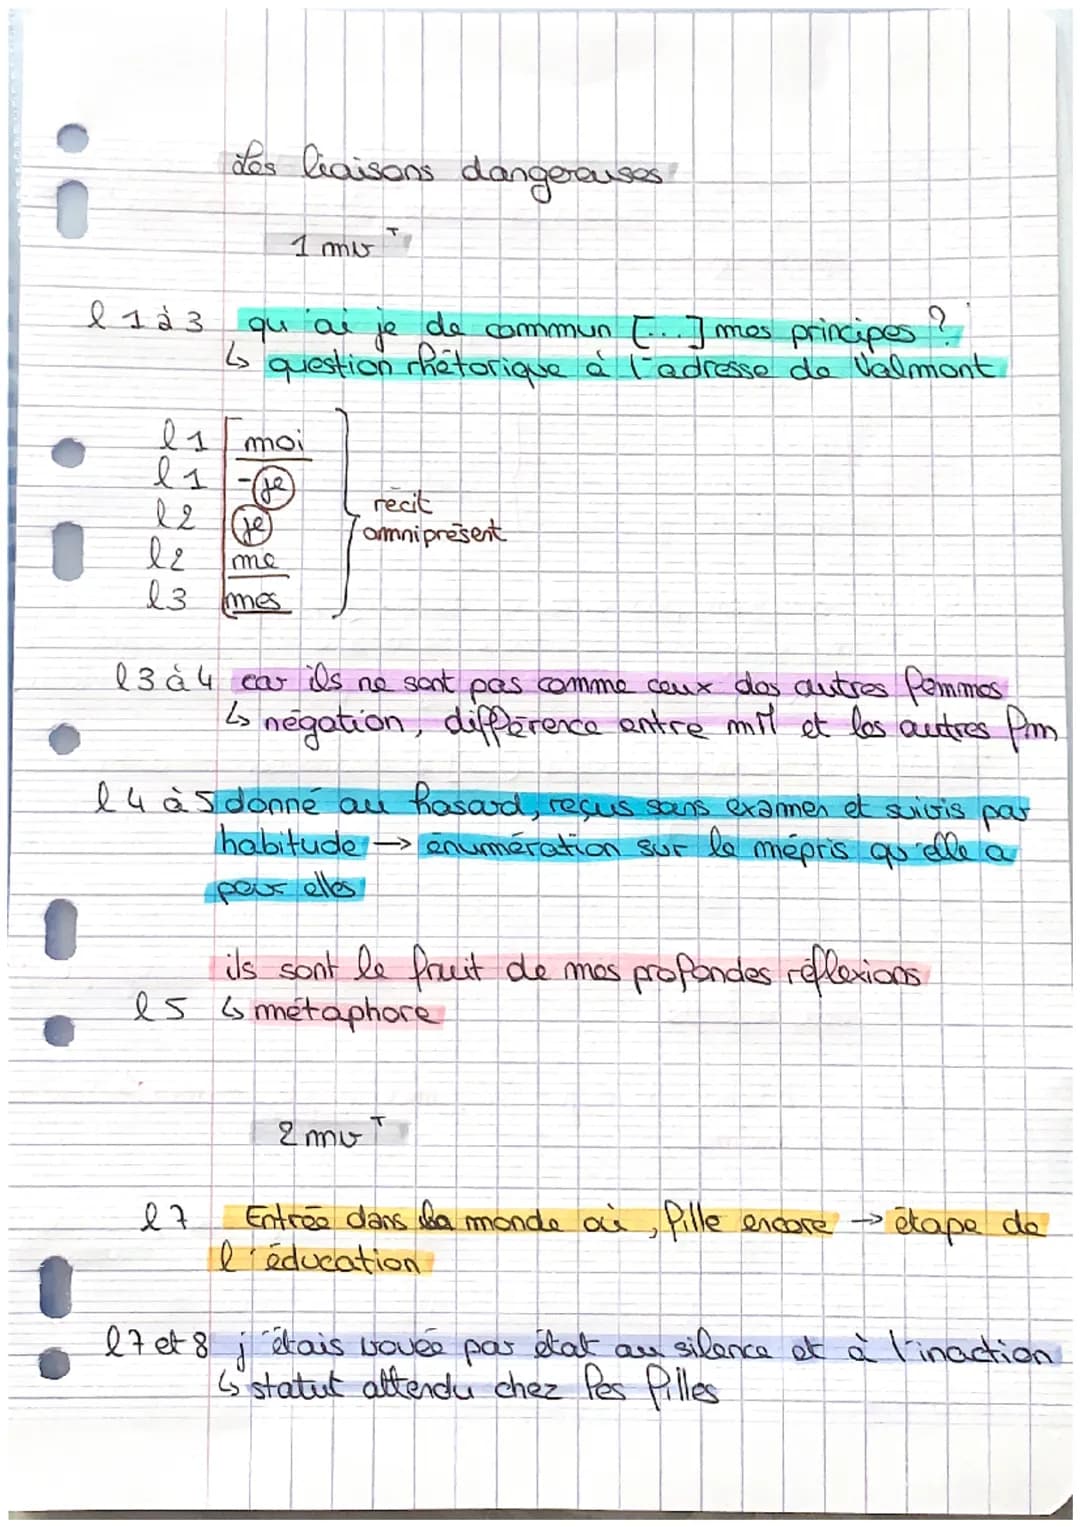 Les liaisons dangereuses
1 mvT
l 1 à 3 qu'ai je de commun [...] mes principes ?
↳ question rhétorique à l'adresse de Valmont
l1 moi
l1 -je
l2 je
l2 me
l3 mes
récit
omniprésent
l3 à 4 car ils ne sont pas comme ceux des autres femmes
↳ négation, différence entre mM et les autres fm
l 4 à 5 donné au hasard, reçus sans examen et suivis par
habitude → énumération sur le mépris qu'elle a
pour elles
ils sont le fruit de mes profondes réflexions
l5 ↳ métaphore
2 mvT
l7 Entrée dans la monde où, fille encore → étape de
l'éducation
l7 et 8 j'étais vouée par état au silence et à l'inaction
↳ statut attendu chez les filles